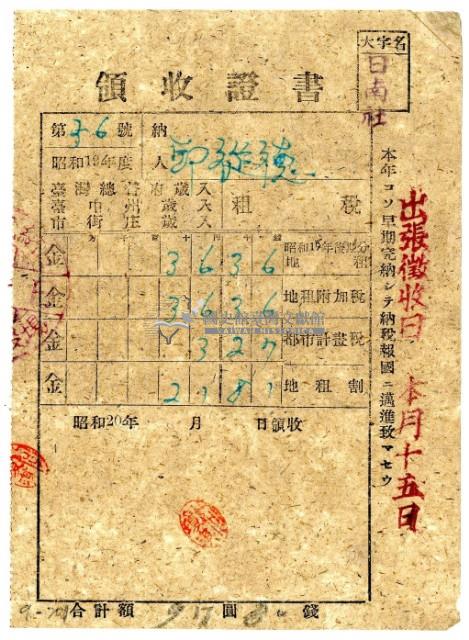 大字名
日南社
領收證書
第36號
納人
昭和19年度
臺灣總督府歲入
臺中州歲入
市街庄歲入
租稅
金 3636 昭和19年度 分 地租
金 3636 地租附加稅
金 327 都市計畫稅
金 地租割
昭和20年 月 日領收
合計額 917圓 錢
本年コソ早期完納シテ納稅報國ニ邁進致マセウ
出張徵收日 本月十五日
國史館臺灣文獻館
TAIWAN HISTORICA